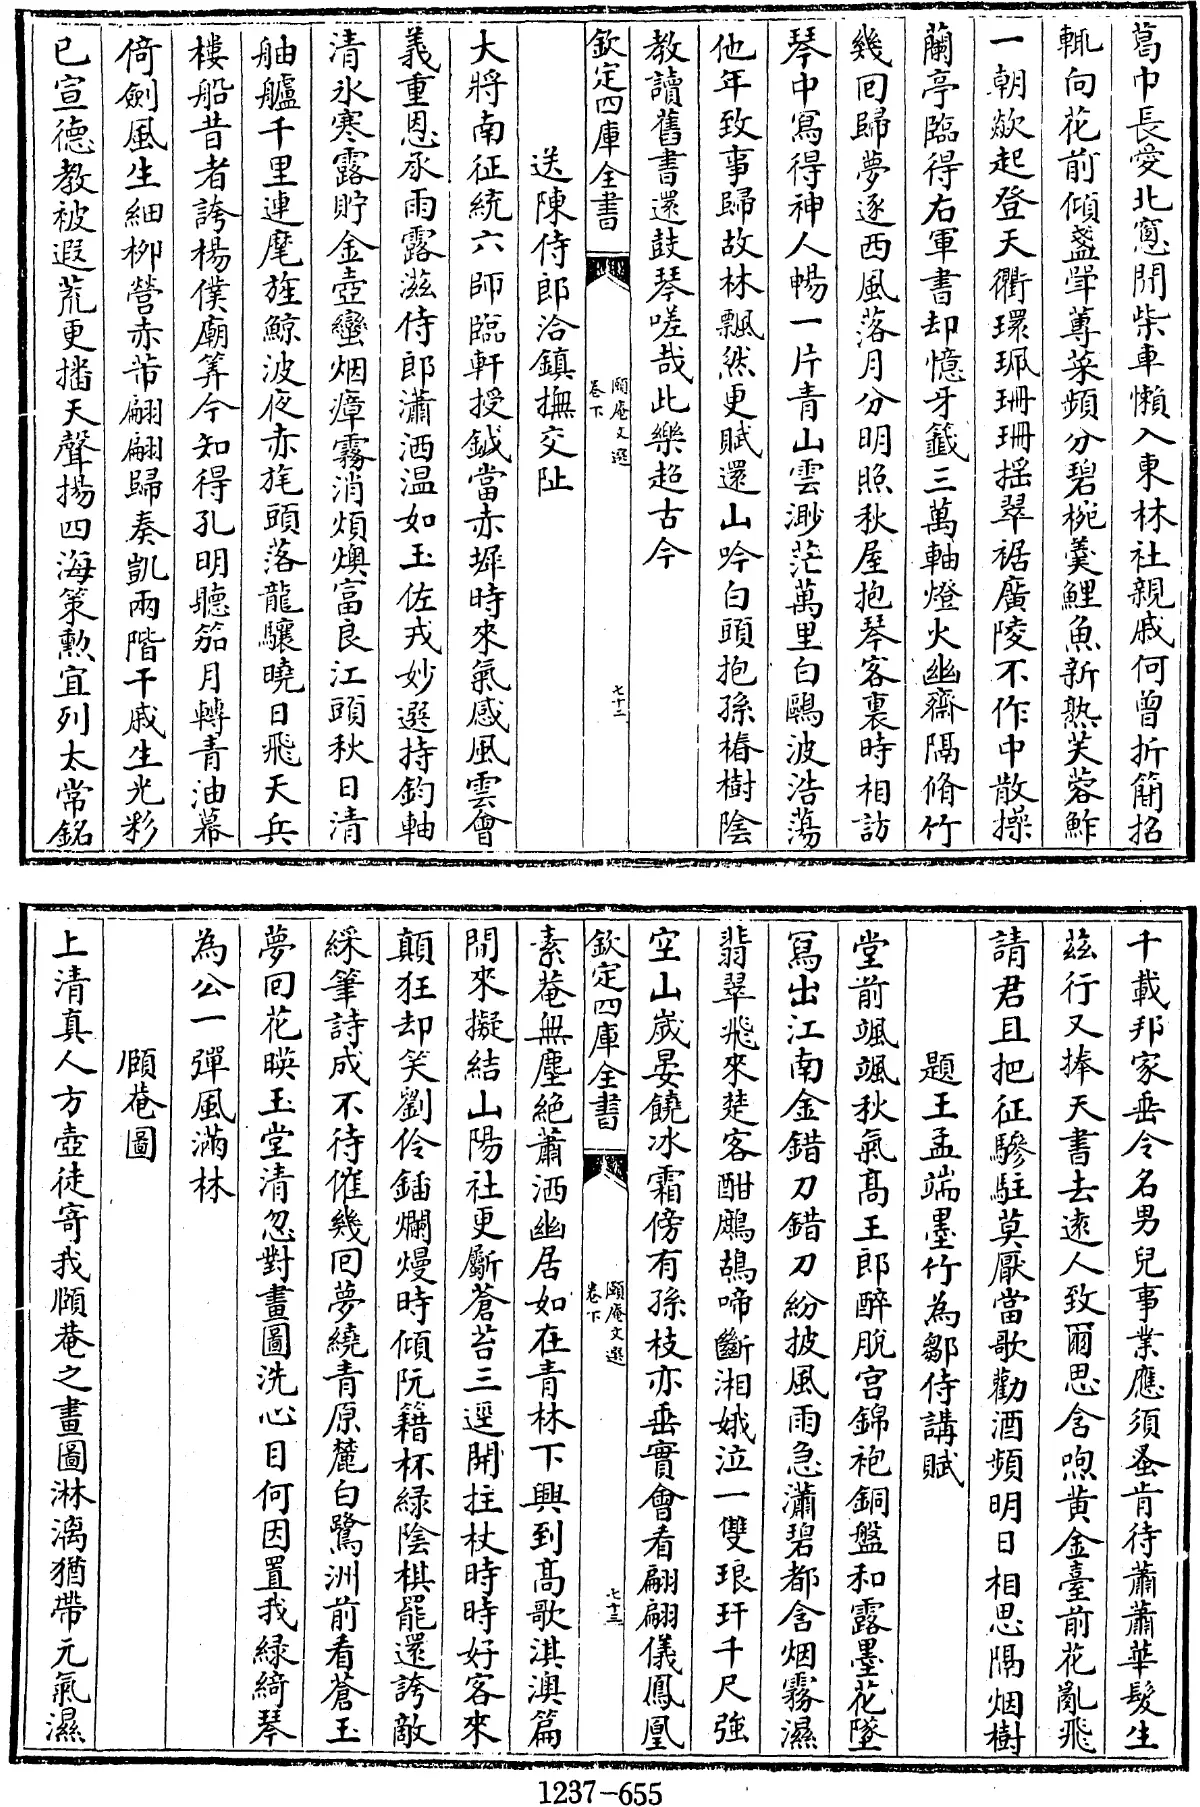 葛巾長愛北窓閒柴車懶入東林社親戚何曾折簡招
輒向花前傾盞斝蓴菜頻分碧椀羮鯉魚新熟芙蓉鮓
一朝歘起登天衢環珮珊珊揺翠裾廣陵不作中散操
蘭亭臨得右軍書却憶牙籖三萬軸燈火幽齋隔脩竹
幾回歸夢逐西風落月分明照秋屋抱琴客裏時相訪
琴中寫得神人暢一片青山雲渺茫萬里白鷗波浩蕩
他年致事歸故林飄然更賦還山吟白頭抱孫椿樹陰
教讀舊書還鼓琴嗟哉此樂超古今
欽定四庫全書
頤庵文選
卷下
七十二
送陳侍郎洽鎮撫交阯
大將南征統六師臨軒授鉞當赤墀時來氣感風雲會
義重恩承雨露滋侍郎瀟洒温如玉佐戎妙選持鈞軸
清氷寒露貯金壺蠻烟瘴霧消煩燠富良江頭秋日清
舳艫千里連麾旌鯨波夜赤旄頭落龍驤曉日飛天兵
樓船昔者誇楊僕廟筭今知得孔明聽笳月轉青油幕
倚劍風生細柳營赤芾翩翩歸奏凱兩階干戚生光彩
已宣德教被遐荒更播天聲揚四海策勲宜列太常銘
千載邦家垂令名男兒事業應須蚤肯待蕭蕭華髮生
兹行又捧天書去逺人致爾思含喣黄金臺前花亂飛
請君且把征驂駐莫厭當歌勸酒頻明日相思隔烟樹
題王孟端墨竹為鄒侍講賦
堂前颯颯秋氣髙王郎醉脱宫錦袍銅盤和露墨花墜
寫出江南金錯刀錯刀紛披風雨急瀟碧都含烟霧濕
翡翠飛來楚客酣鷓鴣啼斷湘娥泣一雙琅玕千尺強
空山歲晏饒冰霜傍有孫枝亦垂實會看翩翩儀鳳凰
欽定四庫全書
頤庵文選
卷下
七十三
素菴無塵絶蕭洒幽居如在青林下興到髙歌淇澳篇
閒來擬結山陽社更斸蒼苔三逕開拄杖時時好客來
顛狂却笑劉伶鍤爛熳時傾阮籍杯緑陰棋罷還誇敵
綵筆詩成不待催幾回夢繞青原麓白鷺洲前看蒼玉
夢回花暎玉堂清忽對畫圖洗心目何因置我緑綺琴
為公一彈風滿林
頤菴圖
上清真人方壺徒寄我頤菴之畫圖淋漓猶帶元氣濕
1237-655